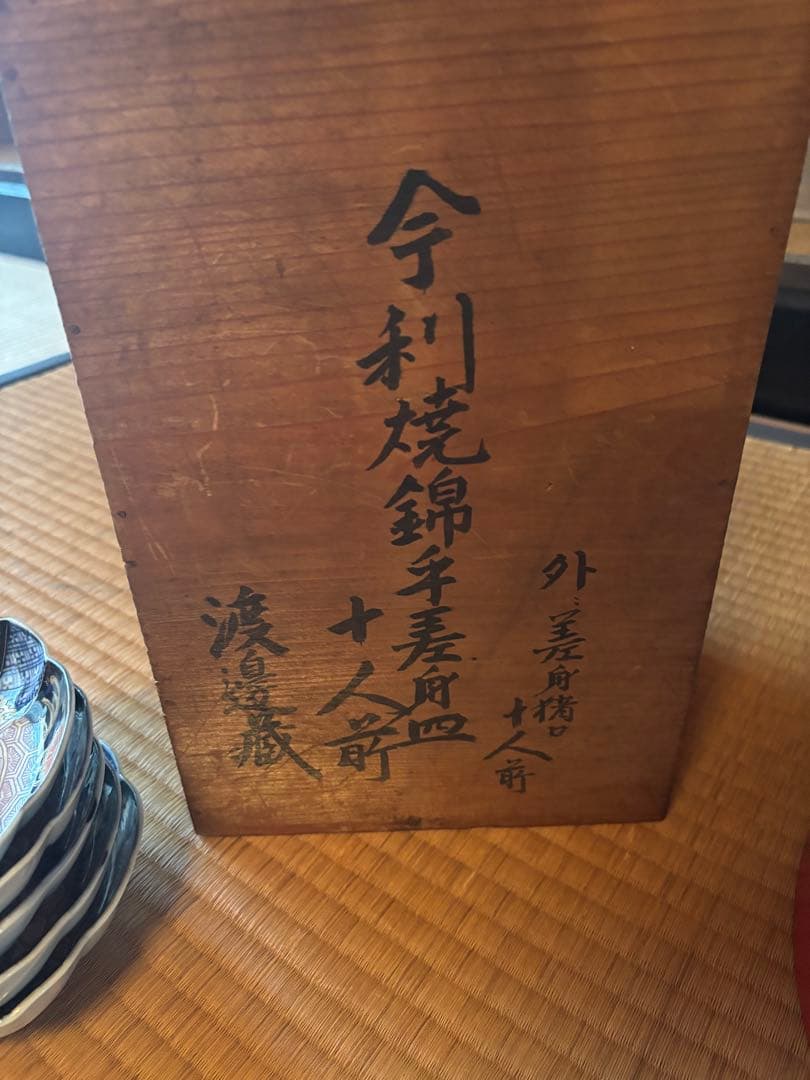 外ニ差身猪口
十人前
今利焼錦手差身皿
十人前
渡邊蔵